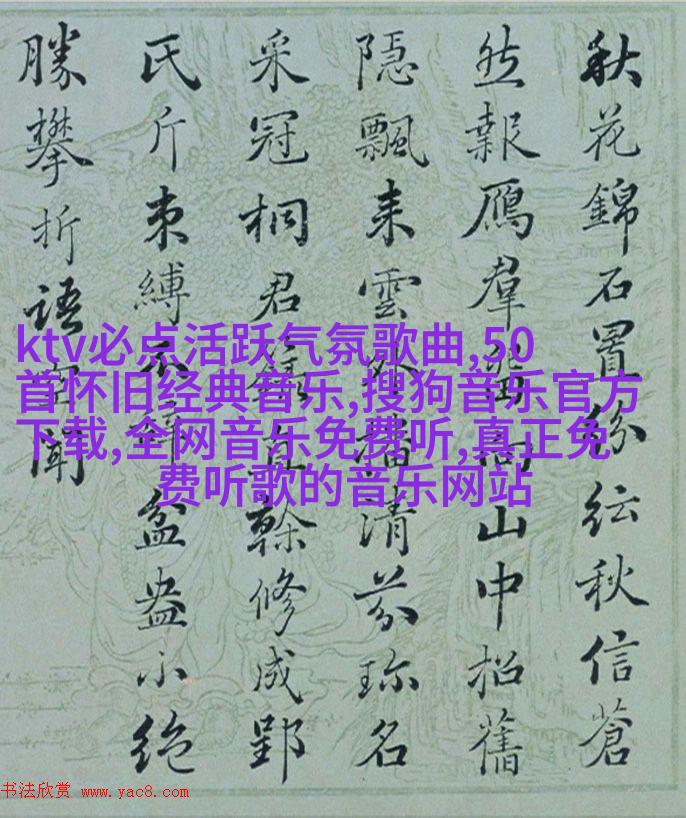 秋花錦石置紛紜秋信蒼
然報鴈羣向山中招舊
隱飄来雲外播清芬珎名
采冠桐君錄幹修成郢
氏斤束縛不盆盎小絶
勝攀折語聞
ktv必点活跃气氛歌曲,50
首怀旧经典音乐,搜狗音乐官方
下载,全网音乐免费听,真正免
费听歌的音乐网站
书法欣赏 www.yac8.com